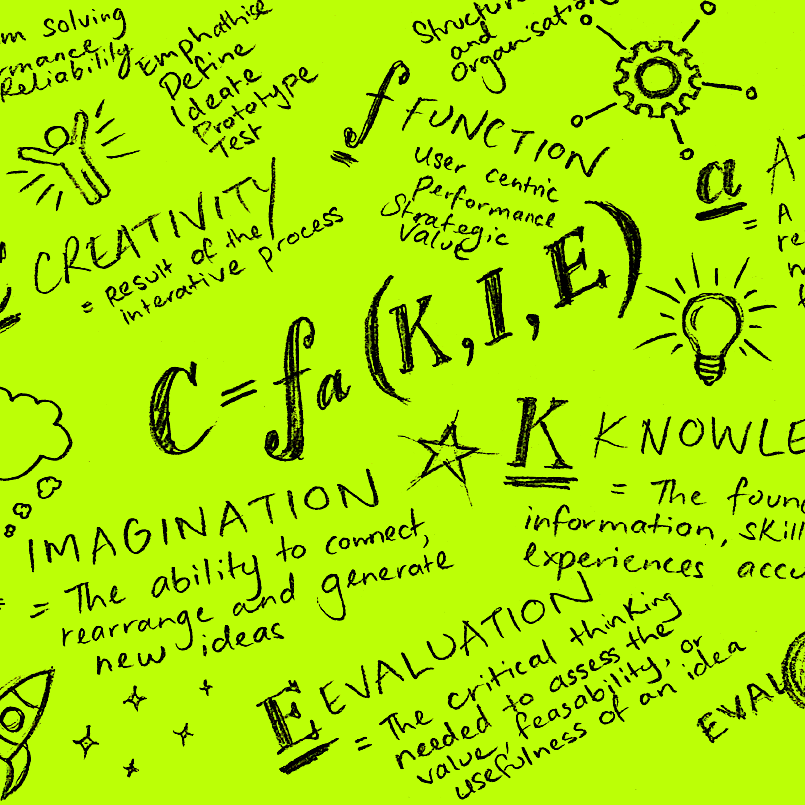 solving
Reliability
Emphathise
Define
Ideate
Prototype
Test
Structure
and
Organisation
f FUNCTION
User centric
Performance
Strategic
Value
a
=
CREATIVITY
= Result of the
interative process
C = fa (K, I, E)
K KNOWLE
= The foun
information, skill
experiences accu
IMAGINATION
= The ability to connect,
rearrange and generate
new ideas
E EVALUATION
= The critical thinking
needed to assess the
value, feasability, or
usefulness of an idea
EVAL